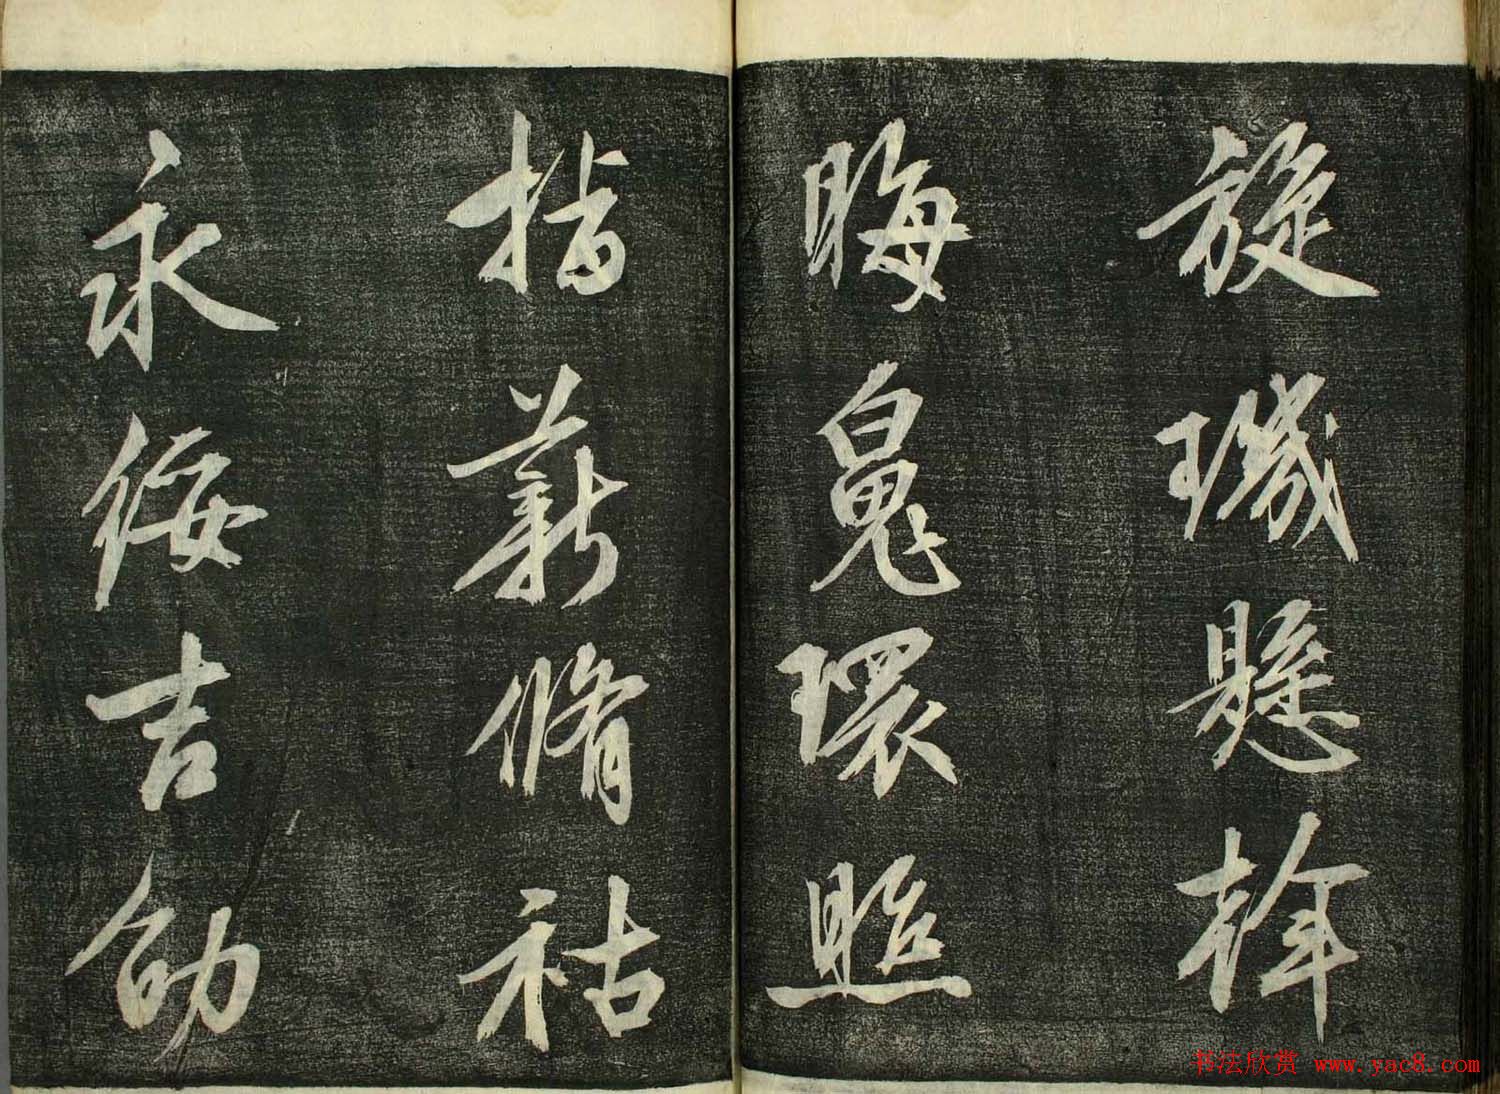 旋璣懸斡
晦魄環照
指薪脩祜
永綏吉劭
书法欣赏 www.yac8.com